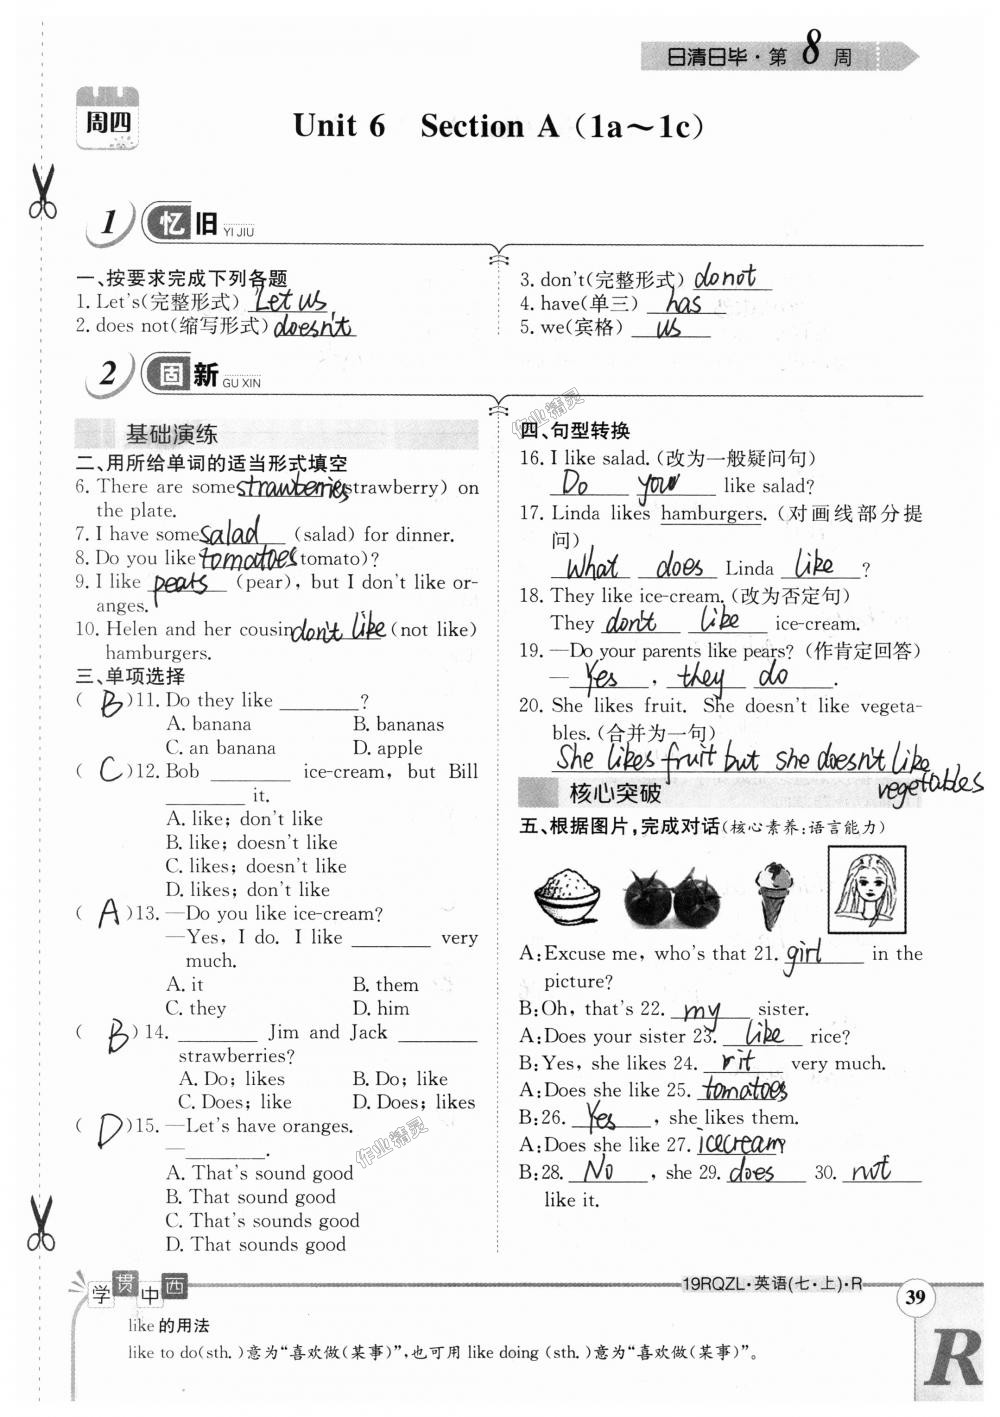 日清日毕·第 8 周
周四
Unit 6 Section A (1a～1c)
1 忆旧 YI JIU
一、按要求完成下列各题
1. Let's(完整形式) Let us
2. does not(缩写形式) doesn't
3. don't(完整形式) do not
4. have(单三) has
5. we(宾格) us
2 固新 GU XIN
基础演练
二、用所给单词的适当形式填空
6. There are some strawberries (strawberry) on
the plate.
7. I have some salad (salad) for dinner.
8. Do you like tomatoes (tomato)?
9. I like pears (pear), but I don't like or-
anges.
10. Helen and her cousin don't like (not like)
hamburgers.
三、单项选择
( B )11. Do they like ________?
A. banana B. bananas
C. an banana D. apple
( C )12. Bob ________ ice-cream, but Bill
________ it.
A. like; don't like
B. like; doesn't like
C. likes; doesn't like
D. likes; don't like
( A )13. —Do you like ice-cream?
—Yes, I do. I like ________ very
much.
A. it B. them
C. they D. him
( B )14. ________ Jim and Jack ________
strawberries?
A. Do; likes B. Do; like
C. Does; like D. Does; likes
( D )15. —Let's have oranges.
—________.
A. That's sound good
B. That sound good
C. That's sounds good
D. That sounds good
四、句型转换
16. I like salad. (改为一般疑问句)
Do your like salad?
17. Linda likes hamburgers. (对画线部分提
问)
What does Linda like ?
18. They like ice-cream. (改为否定句)
They don't like ice-cream.
19. —Do your parents like pears? (作肯定回答)
— Yes , they do .
20. She likes fruit. She doesn't like vegeta-
bles. (合并为一句)
She likes fruit but she doesn't like
vegetables
核心突破
五、根据图片，完成对话(核心素养:语言能力)
A: Excuse me, who's that 21. girl in the
picture?
B: Oh, that's 22. my sister.
A: Does your sister 23. like rice?
B: Yes, she likes 24. rit very much.
A: Does she like 25. tomatoes
B: 26. Yes , she likes them.
A: Does she like 27. icecream
B: 28. No , she 29. does 30. not
like it.
作业精灵
作业精灵
学贯中西
19RQZL·英语(七·上)·R
39
like 的用法
like to do(sth. )意为“喜欢做(某事)”,也可用 like doing (sth. )意为“喜欢做(某事)”。
R